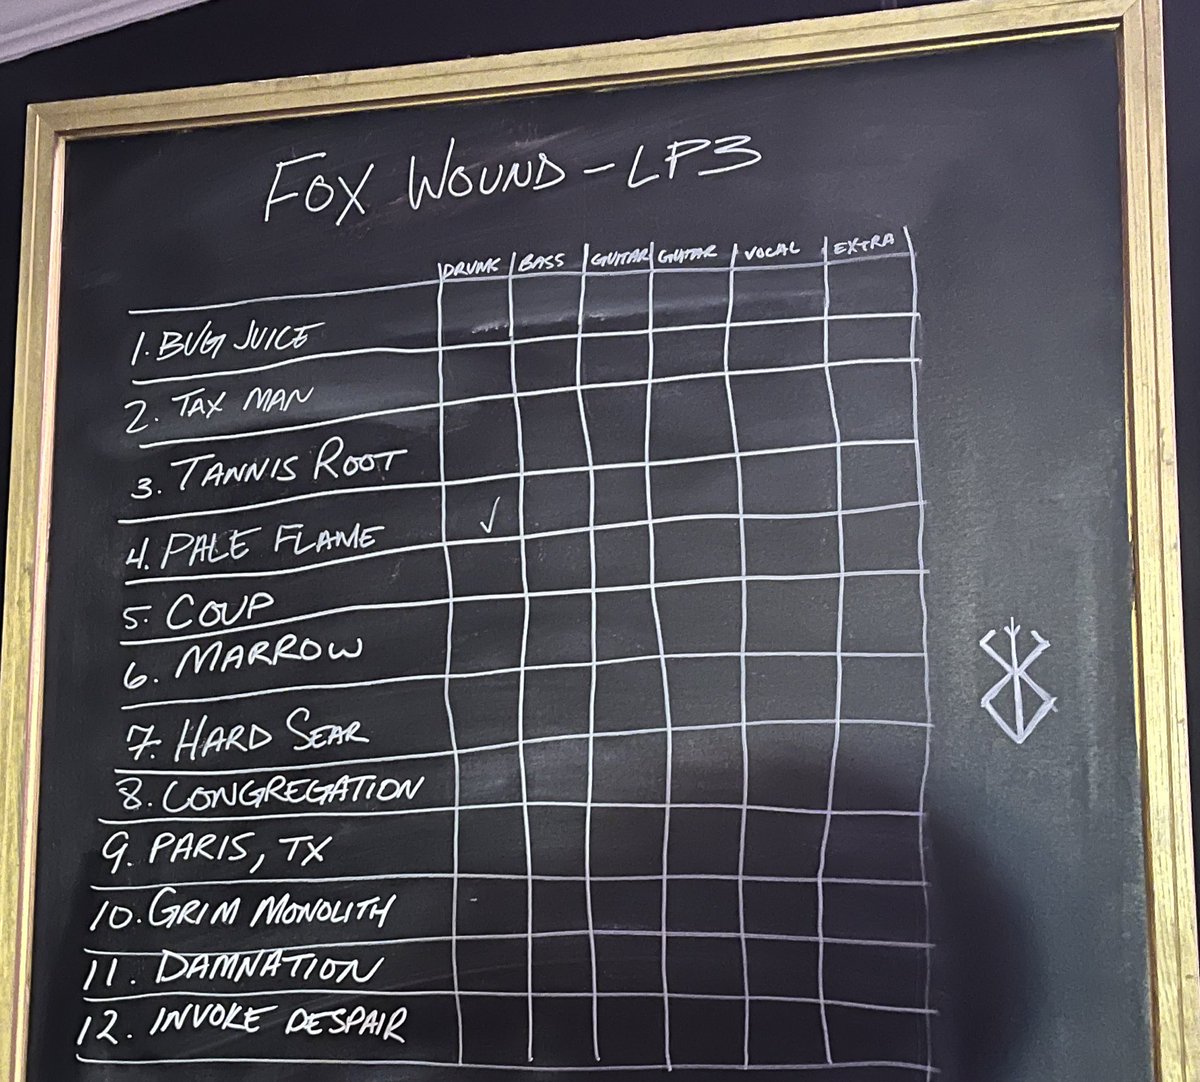 FOX WOUND - LP3
DRUMS BASS GUITAR GUITAR VOCAL EXTRA
1. BUG JUICE
2. TAX MAN
3. TANNIS ROOT
4. PALE FLAME ✓
5. COUP
6. MARROW
7. HARD SEAR
8. CONGREGATION
9. PARIS, TX
10. GRIM MONOLITH
11. DAMNATION
12. INVOKE DESPAIR